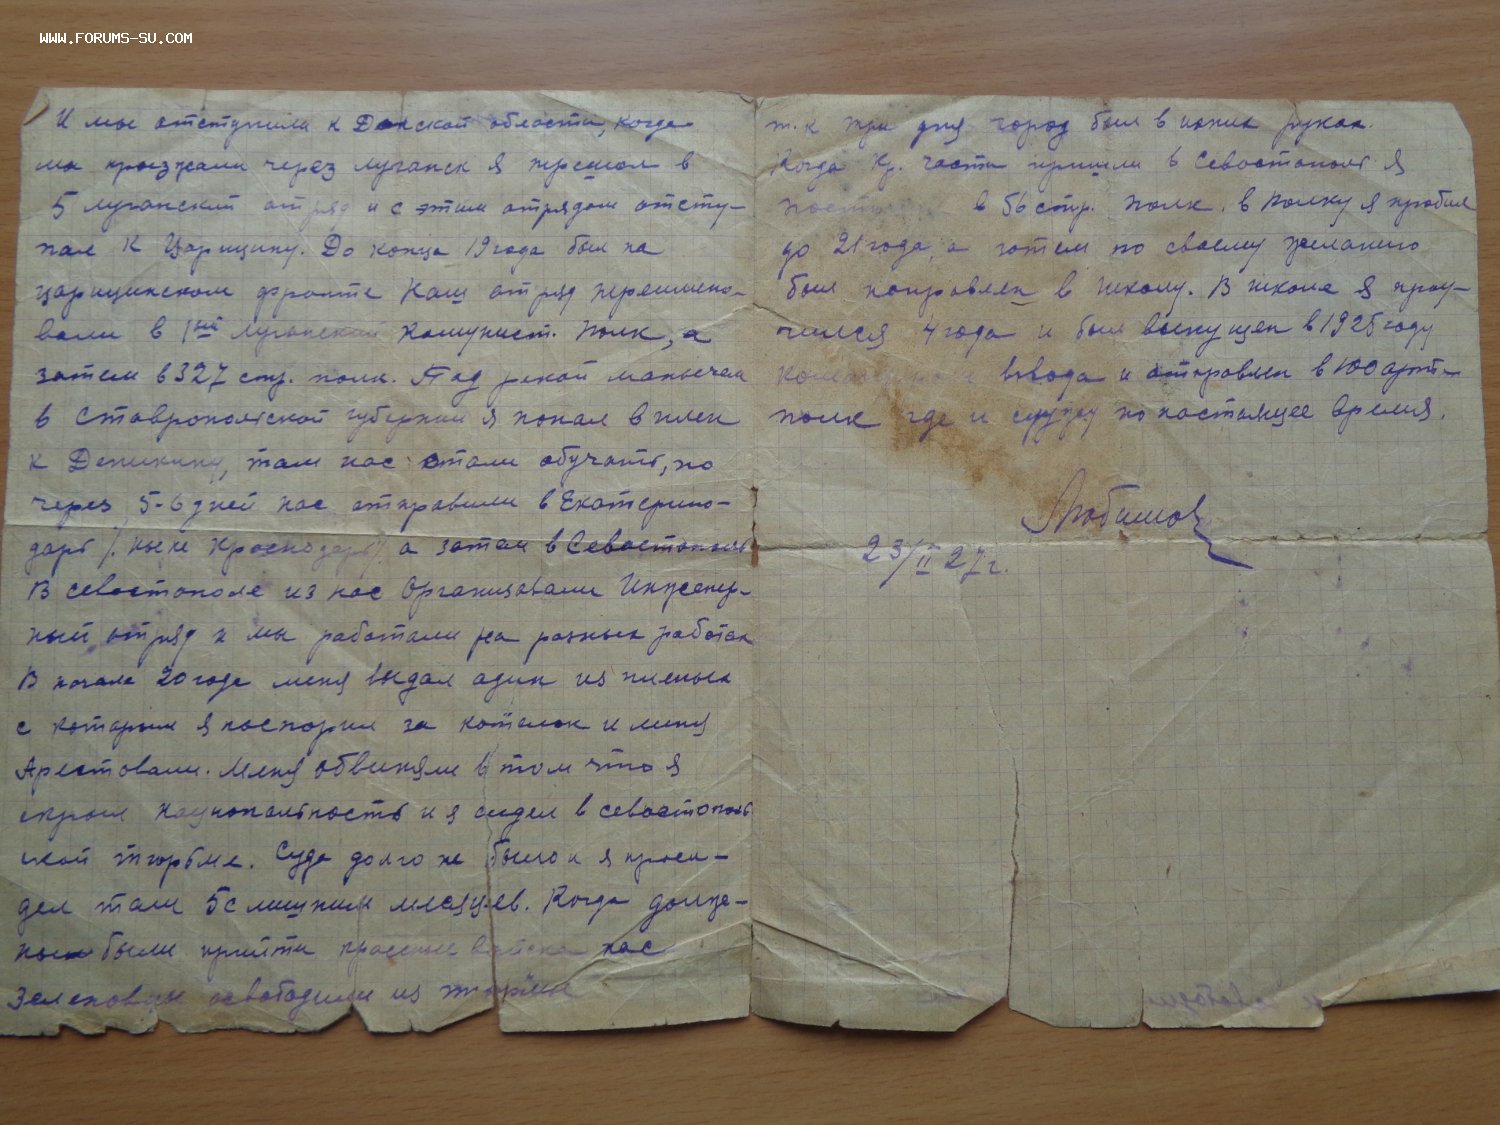 WWW.FORUMS-SU.COM
И мы отступили к Донской области, когда
мы проезжали через луганск я перешол в
5 луганский отряд и с этим отрядом отсту-
пал к Царицину. До конца 19 года был на
царицинском фронте Наш отряд переимено-
вали в 1ый луганский Комунист. Полк, а
затем в 327 стр. полк. Под рекой манычем
в Ставропольской губернии я попал в плен
к Деникину, там нас стали обучать, но
через 5-6 дней нас отправили в Екатерино-
дарь /. ныне Краснодарь/. а затем в Севастополь
В севастополе из нас Организовали Инженер-
ный отряд и мы работали на разных работах
В начале 20 года меня выдал один из пленых
с которым я поспорил за котелок и меня
Арестовали. Меня обвиняли в том что я
скрыл национальность и я сидел в севастополь
ской тюрьме. Суда долго не было и я проси-
дел там 5 с лишним месяцев. Когда долже-
ны были прийти красные войска нас
Зеленовцы освободили из тюрьмы
т.к три дня город был в ихних руках.
Когда Кр. части пришли в Севастополь я
в 56 стр. полк. в полку я пробыл
до 21 года, а затем по своему желанию
был направлен в школу. В школе я проу-
чился 4 года и был выпущен в 1925 году
взвода и отправлен в 100 арт-
полк где и служу по настоящее время.
Любимов
23/II 27 г.